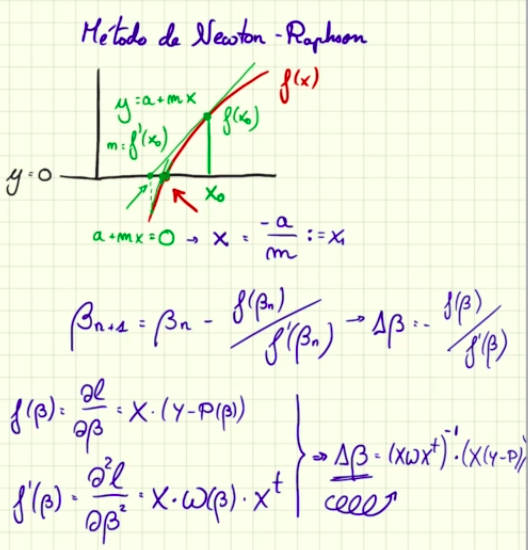 Método de Newton-Raphson
f(x)
y=a+mx
f(x₀)
m=f'(x₀)
y=0
x₀
a+mx=0 → x = -a/m := x₁
βₙ₊₁ = βₙ - f(βₙ)/f'(βₙ) → Δβ = - f(β)/f'(β)
f(β) = ∂ℓ/∂β = X·(Y-P(β))
f'(β) = ∂²ℓ/∂β² = X·ω(β)·Xᵗ
⇒ Δβ = (XωXᵗ)⁻¹·(X(Y-P)